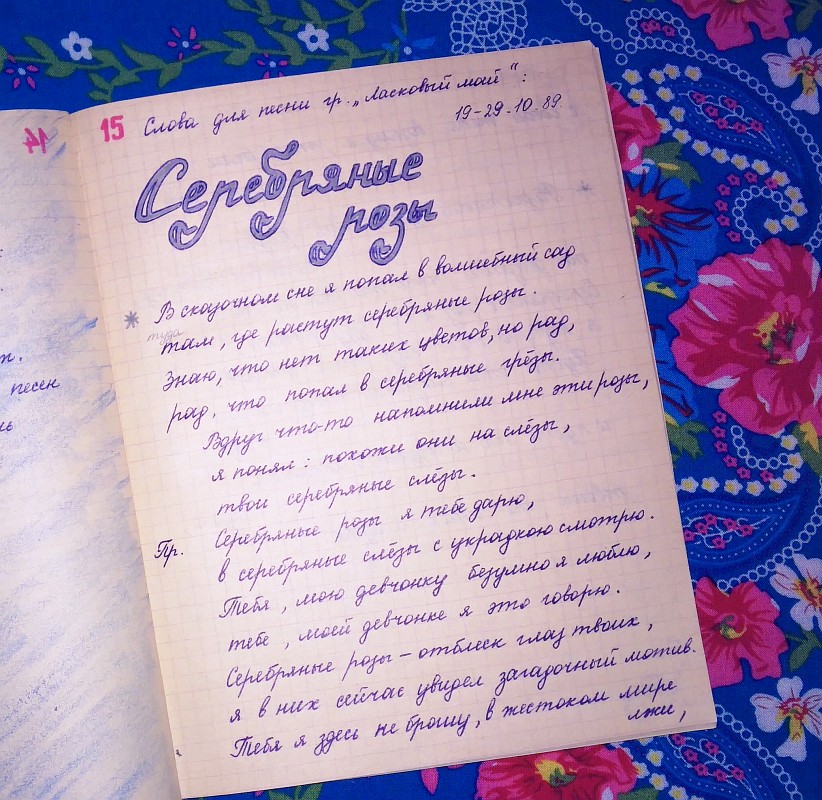 14
т.
песен
ь
15 Слова для песни гр. „Ласковый май":
19-29.10.89
Серебряные
розы
* В сказочном сне я попал в волшебный сад
туда
там, где растут серебряные розы.
Знаю, что нет таких цветов, но рад,
рад, что попал в серебряные грёзы.
Вдруг что-то напомнили мне эти розы,
я понял: похожи они на слёзы,
твои серебряные слёзы.
Пр. Серебряные розы я тебе дарю,
в серебряные слёзы с украдкою смотрю.
Тебя, мою девчонку безумно я люблю,
тебе, моей девчонке я это говорю.
Серебряные розы – отблеск глаз твоих,
я в них сейчас увидел загадочный мотив.
Тебя я здесь не брошу, в жестоком мире
лжи,